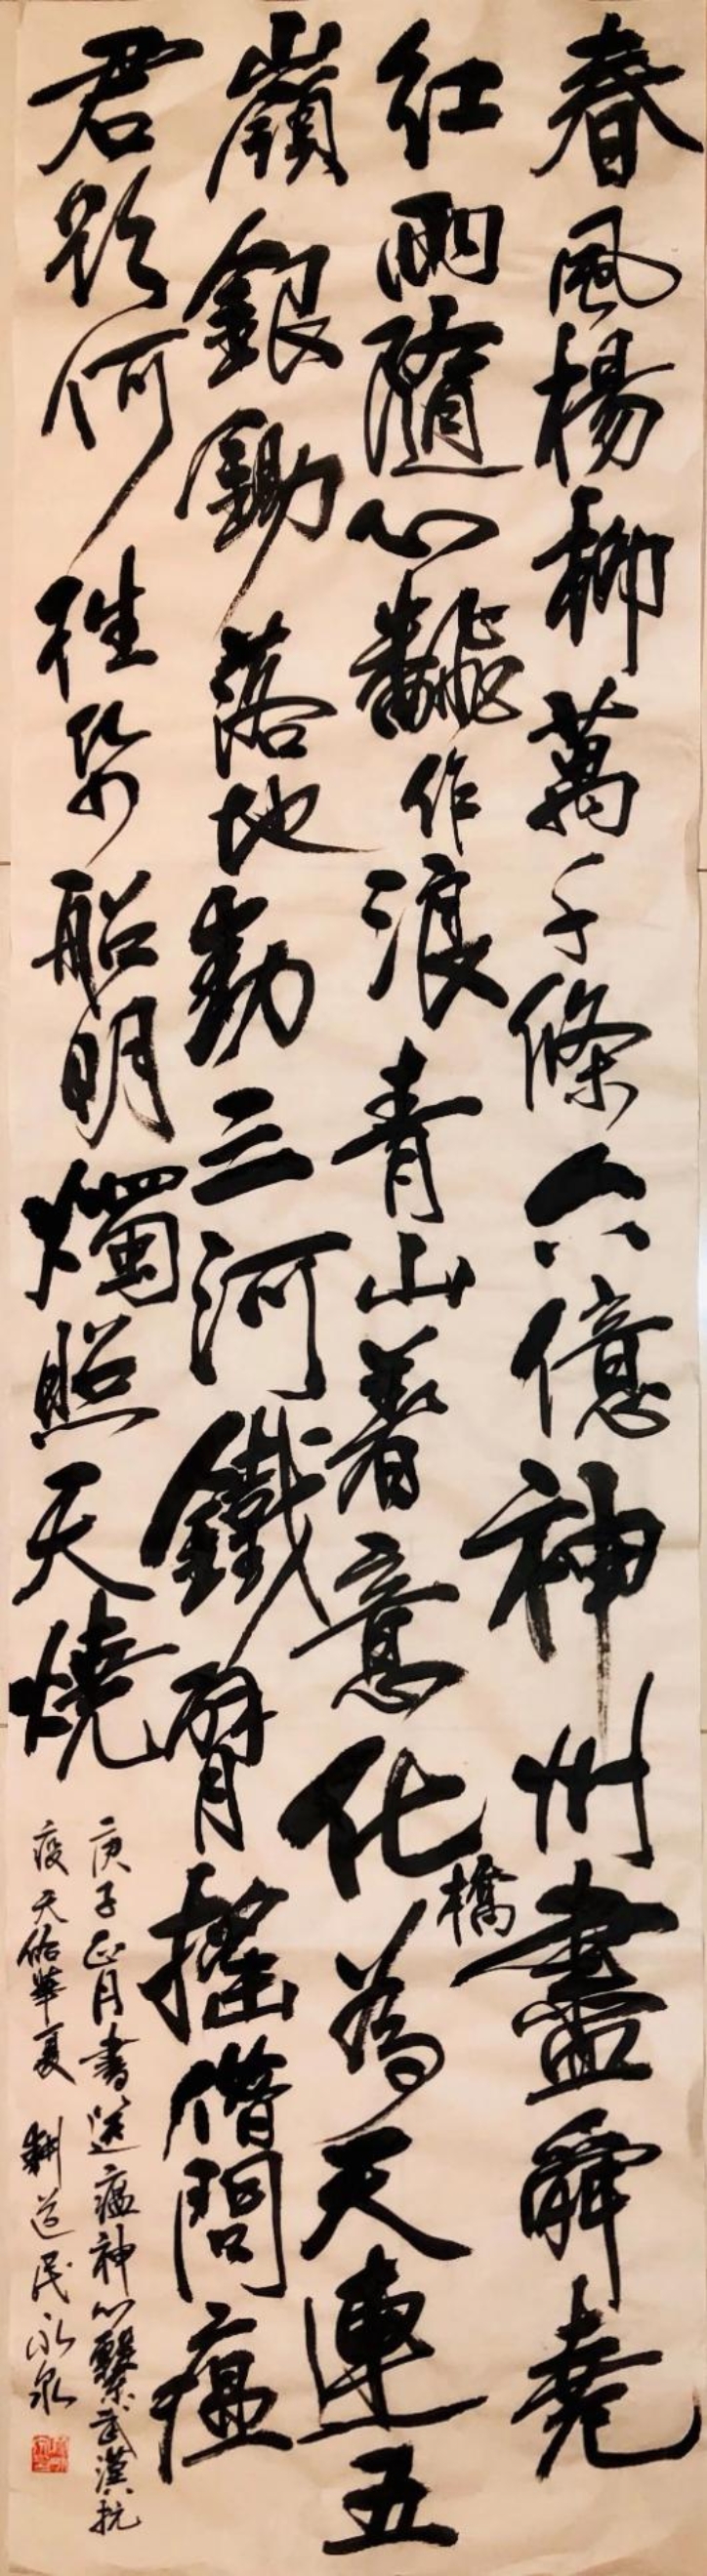 春風楊柳萬千條六億神州盡舜堯
紅雨隨心飜作浪青山著意化橋為天連五
嶺銀鋤落地動三河鐵臂搖借問瘟
君欲何往紙船明燭照天燒
庚子正月書送瘟神心繫武漢抗
疫天佑華夏 耕道民永泉